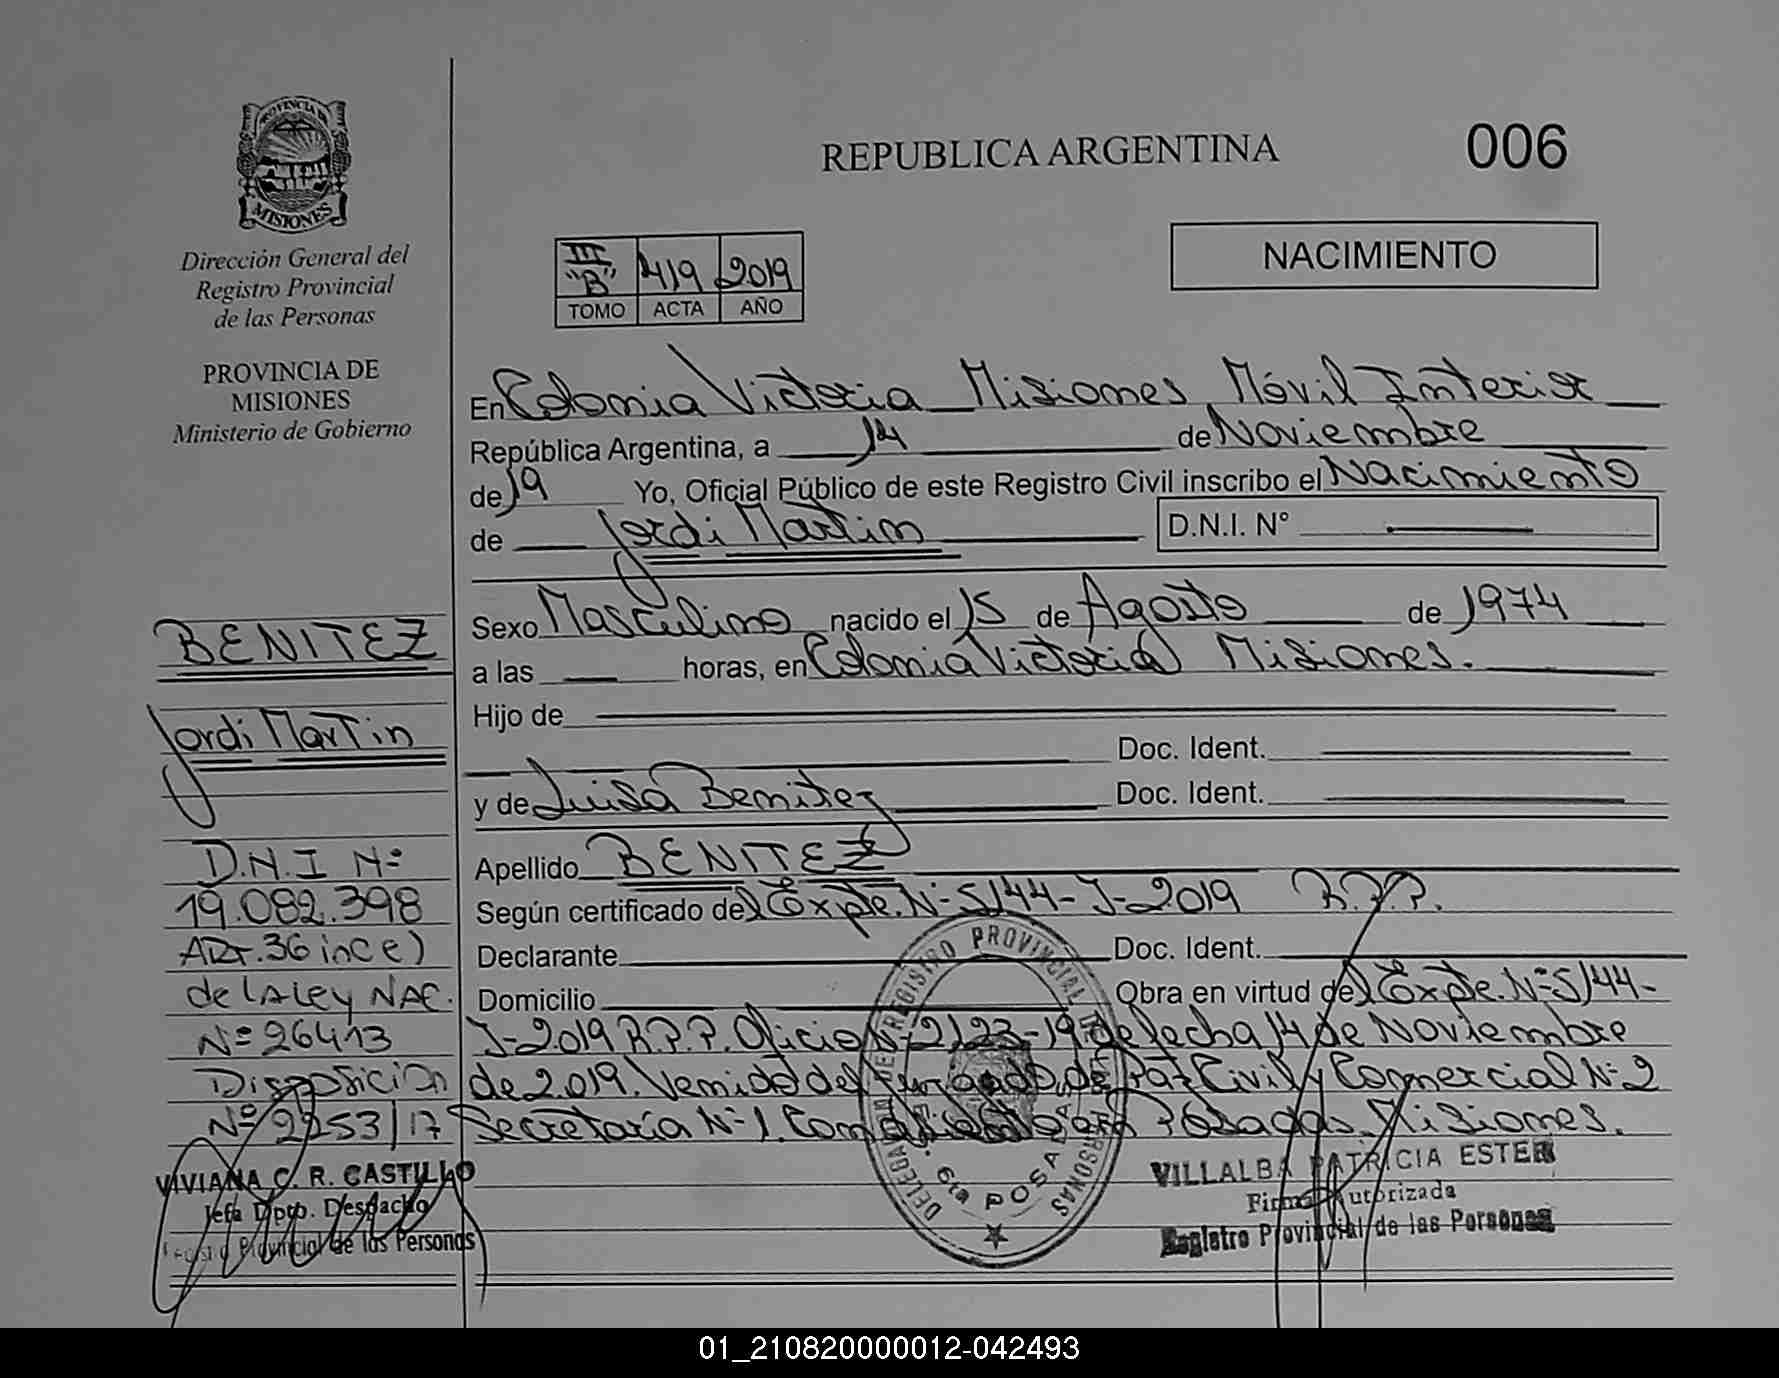 PROVINCIA DE
MISIONES
Dirección General del
Registro Provincial
de las Personas
PROVINCIA DE
MISIONES
Ministerio de Gobierno
REPUBLICA ARGENTINA
006
NACIMIENTO
III "B" 419 2019
TOMO ACTA AÑO
En Colonia Victoria Misiones, Móvil Interior
República Argentina, a 14 de Noviembre
de 19 Yo, Oficial Público de este Registro Civil inscribo el Nacimiento
de Jordi Martin D.N.I. N°
Sexo Masculino nacido el 15 de Agosto de 1974
a las horas, en Colonia Victoria Misiones.
Hijo de
Doc. Ident.
y de Luisa Benitez Doc. Ident.
Apellido BENITEZ
Según certificado del Expte. N° 5144-J-2019 R.P.P.
Declarante Doc. Ident.
Domicilio Obra en virtud del Expte. N° 5144-
J-2019 R.P.P. Oficio N° 2123-19 de fecha 14 de Noviembre
de 2.019. Venido del Juzgado de Paz Civil y Comercial N° 2
Secretaría N° 1. Con asiento en Posadas, Misiones.
BENITEZ
Jordi Martin
D.N.I Nº
19.082.398
ART. 36 inc e)
de la Ley NAC.
Nº 26413
Disposición
Nº 2253/17
VIVIANA C. R. CASTILLO
Jefa Dpto. Despacho
Registro Provincial de las Personas
DELEGACION DEL REGISTRO PROVINCIAL DE LAS PERSONAS
6ta
POSADAS
VILLALBA PATRICIA ESTER
Firma Autorizada
Registro Provincial de las Personas
01_210820000012-042493